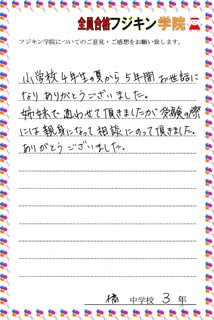 全員合格フジキン学院
フジキン学院についてのご意見・ご感想をお願い致します。
小学校4年生の頃から5年間お世話に
なりありがとうございました。
姉妹で通わせて頂きましたが受験の際
には親身になって相談にのって頂きました。
ありがとうございました。
橘 中学校 3 年